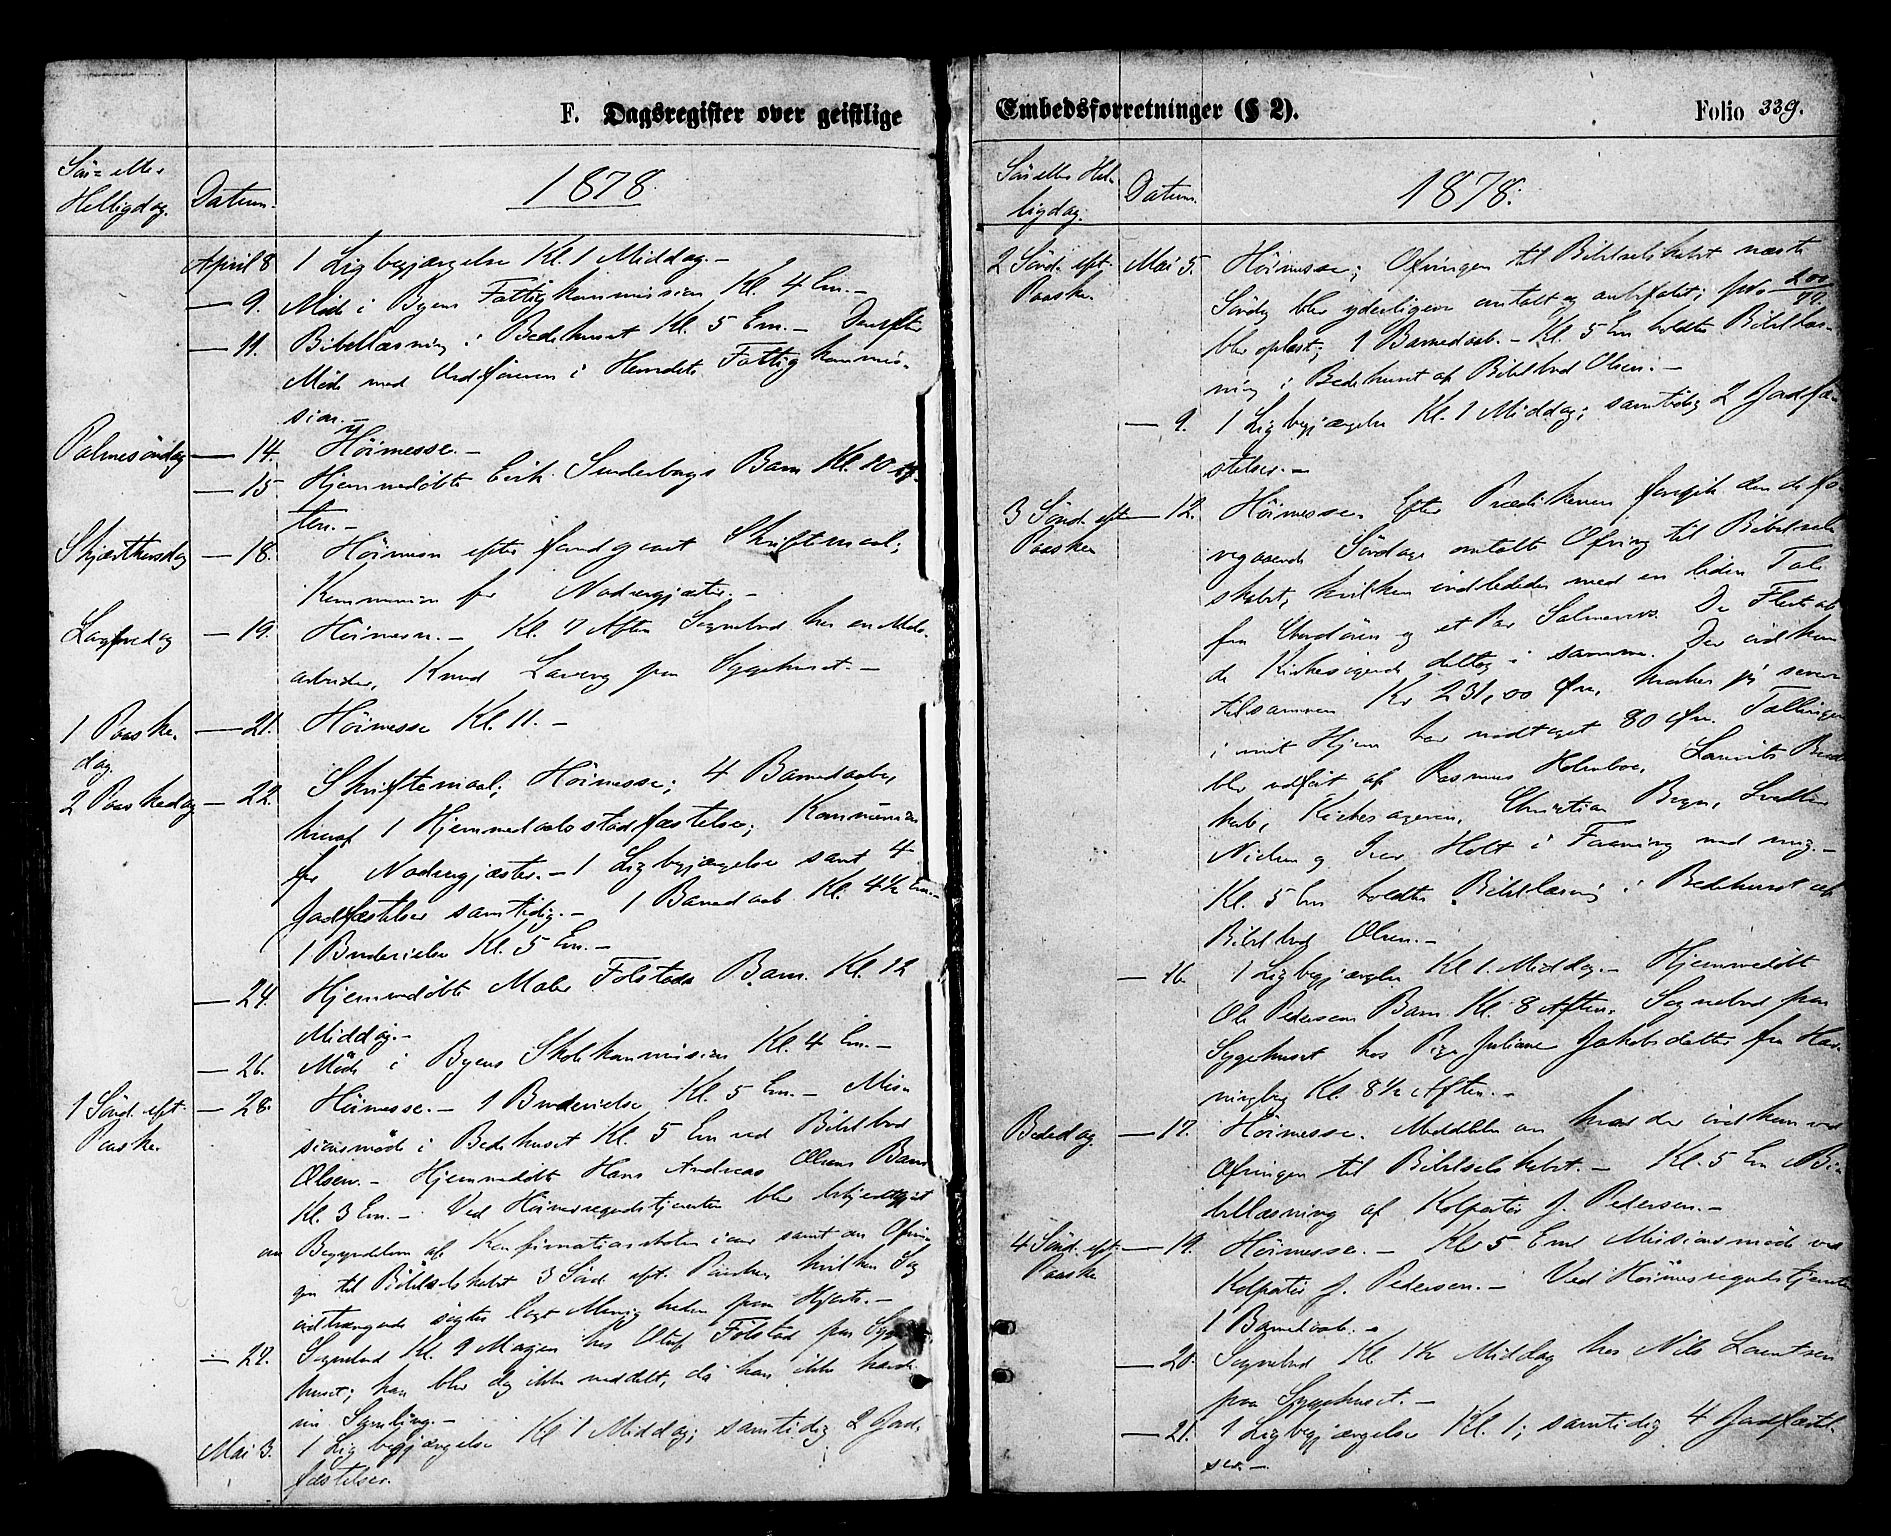 F. Dagsregister over geistlige
Søn- eller
Helligdag.
Datum.
1878.
April 8 1 Ligbegjængelse Kl. 1 Middag. –
– 9. Møde i Byens Fattigkommission Kl. 4 Em. –
– 11. Bibellæsning i Bedehuset Kl. 5 Em. – Derefter
Møde med Ordføreren i Herredets Fattigkommis-
sion.
Palmesøndag – 14. Høimesse. –
– 15 Hjemmedøbte Erik Sunderborgs Barn Kl. 10
ten. –
Skjærthorsdag – 18. Høimesse efter foregaaet Skriftemaal;
Kommunion for Nadvergjæster. –
Langfredag – 19. Høimesse. – Kl. 7 Aften Sognebud hos en
arbeider, Knud paa Sygehuset. –
1 Paaske- – 21. Høimesse Kl. 11. –
dag.
2 Paaskedag – 22. Skriftemaal; Høimesse; 4 Barnedaab,
hvoraf 1 Hjemmedaabsstadfæstelse; Kommunion
for Nadvergjæster. – 1 Ligbegjængelse samt 4
Jordfæstelser samtidig. – 1 Barnedaab Kl. 4½ Em. –
1 Brudevielse Kl. 5 Em. –
– 24. Hjemmedøbte Maler Folstads Barn Kl. 12
Middag. –
– 26. Møde i Byens Skolekommission Kl. 4 Em. –
1 Sønd. eft. – 28. Høimesse. – 1 Brudevielse Kl. 5 Em. – Mis-
Paaske.
sionsmøde i Bedehuset Kl. 5 Em ved Bibelbud
Olsen. – Hjemmedøbt Hans Andreas Olsens Barn
Kl. 3 Em. – Ved Høimessegudstjenesten blev bekjendtgjort
om Begyndelsen af Konfirmationsskolen i aar samt om Ofrin-
gen til Bibelselskabet 3 Sønd. eft. Paaske, hvilken Sag
indtrængende søgtes lagt Menigheden paa Hjerte. –
– 29. Sognebud Kl. 9 Morgen hos Oluf Folstad paa Syge-
huset; han blev dog ikke meddelt, da han ikke havde
sin Samling. –
Mai 3. 1 Ligbegjængelse Kl 1 Middag; samtidig 2 Jord-
fæstelser.
Embedsforretninger (§ 2).
Folio 339.
Søn eller Hel-
ligdag.
Datum.
1878.
2 Sønd. eft. Mai 5. Høimesse; Ofringen til Bibelselskabet næste
Paaske.
Søndag blev yderligere omtalt og anbefalet;
blev oplæst; 1 Barnedaab. – Kl. 5 Em holdtes Bibellæs-
ning i Bedehuset af Bibelbud Olsen. –
– 9. 1 Ligbegjængelse Kl. 1 Middag; samtidig 2 Jordfæ-
stelser. –
3 Sønd. eft. – 12. Høimesse. Efter Prædikenen foregik den de fo-
Paaske
regaaende Søndage omtalte Ofring til Bibelsel-
skabet, hvilken indlededes med en liden Tale
fra Chordøren og et Par Salmevers. De Fleste af
de Kirkesøgende deltog i samme. Der indkom
tilsammen Kr 231,00 Øre, hvorhos jeg senere
i mit Hjem har modtaget 80 Øre. Tællingen
blev udført af Rasmus Holmboe, Laurits
Kirkesangeren, Christian
Nielsen og Iver Holt i Forening med mig. –
Kl. 5 Em holdtes Bibellæsning i Bedehuset af
Bibelbud Olsen. –
– 16. 1 Ligbegjængelse Kl. 1 Middag. – Hjemmedøbt
Ole Pedersens Barn Kl. 8 Aften. Sognebud paa
Sygehuset hos Pige Juliane Jakobsdatter fra
Kl. 8½ Aften. –
Bededag – 17. Høimesse. Meddelelse om hvad der indkom ved
Ofringen til Bibelselskabet. – Kl. 5 Em Bi-
bellæsning af Kolportør J. Pedersen. –
4 Sønd. eft. – 19. Høimesse. – Kl 5 Em Missionsmøde ved
Paaske
Kolportør J. Pedersen. – Ved Høimessegudstjenesten
1 Barnedaab. –
– 20. Sognebud Kl 1½ Middag hos Nils Lauritsen
paa Sygehuset. –
– 21. 1 Ligbegjængelse Kl. 1; samtidig 4 Jordfæstel-
ser. –